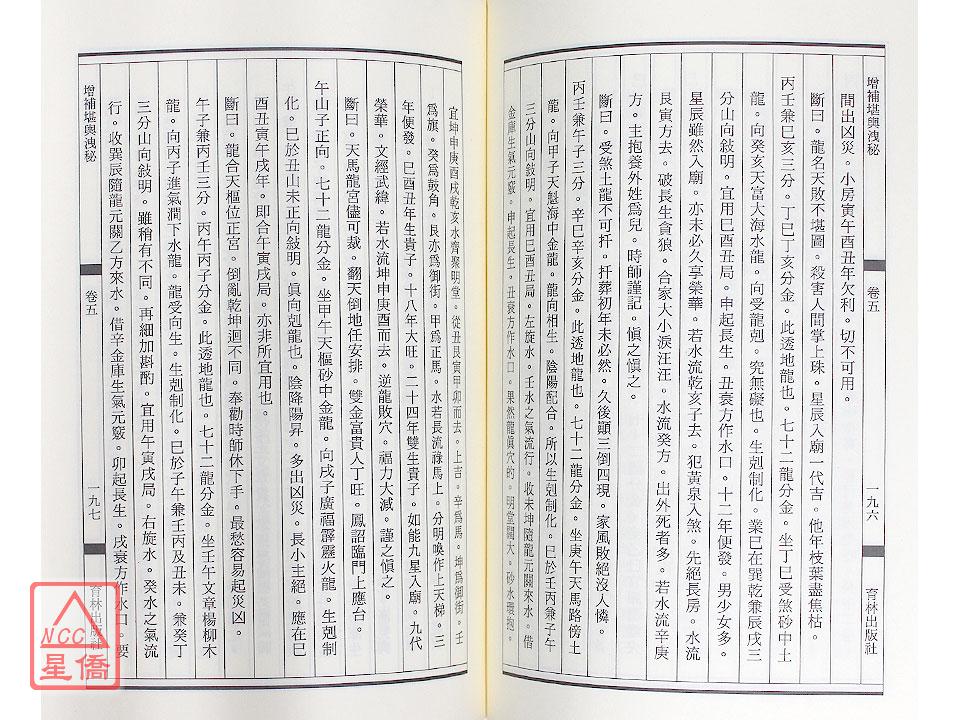 增補堪輿洩秘
卷五
一九六
育林出版社
間出凶災。小房寅午酉丑年欠利。切不可用。
斷曰。龍名天敗不堪圖。殺害人間掌上珠。星辰入廟一代吉。他年枝葉盡焦枯。
丙壬兼巳亥三分。丁巳丁亥分金。此透地龍也。七十二龍分金。坐丁巳受煞砂中土
龍。向癸亥天富大海水龍。向受龍剋。究無礙也。生剋制化。業已在巽乾兼辰戌三
分山向敍明。宜用巳酉丑局。申起長生。丑衰方作水口。十二年便發。男少女多。
星辰雖然入廟。亦未必久享榮華。若水流乾亥子去。犯黃泉入煞。先絕長房。水流
艮寅方去。破長生貪狼。合家大小淚汪汪。水流癸方。出外死者多。若水流辛庚
方。主抱養外姓為兒。時師謹記。慎之慎之。
斷曰。受煞土龍不可扦。扦葬初年未必然。久後顚三倒四現。家風敗絕沒人憐。
丙壬兼午子三分。辛巳辛亥分金。此透地龍也。七十二龍分金。坐庚午天馬路傍土
龍。向甲子天魁海中金龍。龍向相生。陰陽配合。所以生剋制化。巳於壬丙兼子午
三分山向敍明。宜用巳酉丑局。左旋水。壬水之氣流行。收未坤隨龍元關來水。借
金庫生氣元竅。申起長生。丑衰方作水口。果然龍眞穴的。明堂闊大。砂水環抱。
宜坤申庚酉戌乾亥水齊聚明堂。從丑艮寅甲卯而去。上吉。辛為馬。坤為御街。壬
為旗。癸為鼓角。艮亦為御街。甲為正馬。水若長流祿馬上。分明喚作上天梯。三
年便發。巳酉丑年生貴子。十八年大旺。二十四年雙生貴子。如能九星入廟。九代
榮華。文經武緯。若水流坤申庚酉而去。逆龍敗穴。福力大減。謹之慎之。
斷曰。天馬龍宮儘可裁。翻天倒地任安排。雙金富貴人丁旺。鳳詔臨門上應台。
午山子正向。七十二龍分金。坐甲午天樞砂中金龍。向戌子廣福霹靂火龍。生剋制
化。巳於丑山未正向敍明。眞向剋龍也。陰降陽昇。多出凶災。長小主絕。應在巳
酉丑寅午戌年。即合午寅戌局。亦非所宜用也。
斷曰。龍合天樞位正宮。倒亂乾坤迥不同。奉勸時師休下手。最愁容易起災凶。
午子兼丙壬三分。丙午丙子分金。此透地龍也。七十二龍分金。坐壬午文章楊柳木
龍。向丙子進氣澗下水龍。龍受向生。生剋制化。巳於子午兼壬丙及丑未。兼癸丁
三分山向敍明。雖稍有不同。再細加斟酌。宜用午寅戌局。右旋水。癸水之氣流
行。收巽辰隨龍元關乙方來水。借辛金庫生氣元竅。卯起長生。戌衰方作水口。要
增補堪輿洩秘
卷五
一九七
育林出版社
NCC
星僑